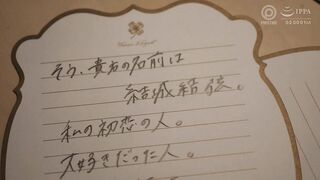 IPPA
そう、貴方の名前は
結城結弦。
私の初恋の人。
大好きだった人。